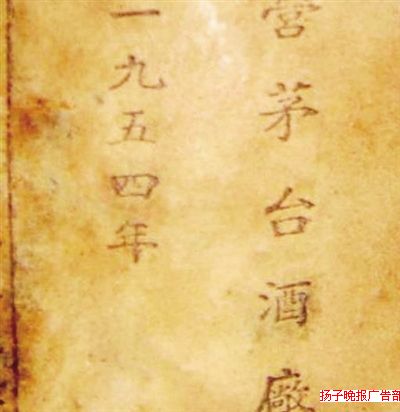 營茅台酒廠
一九五四年
扬子晚报广告部